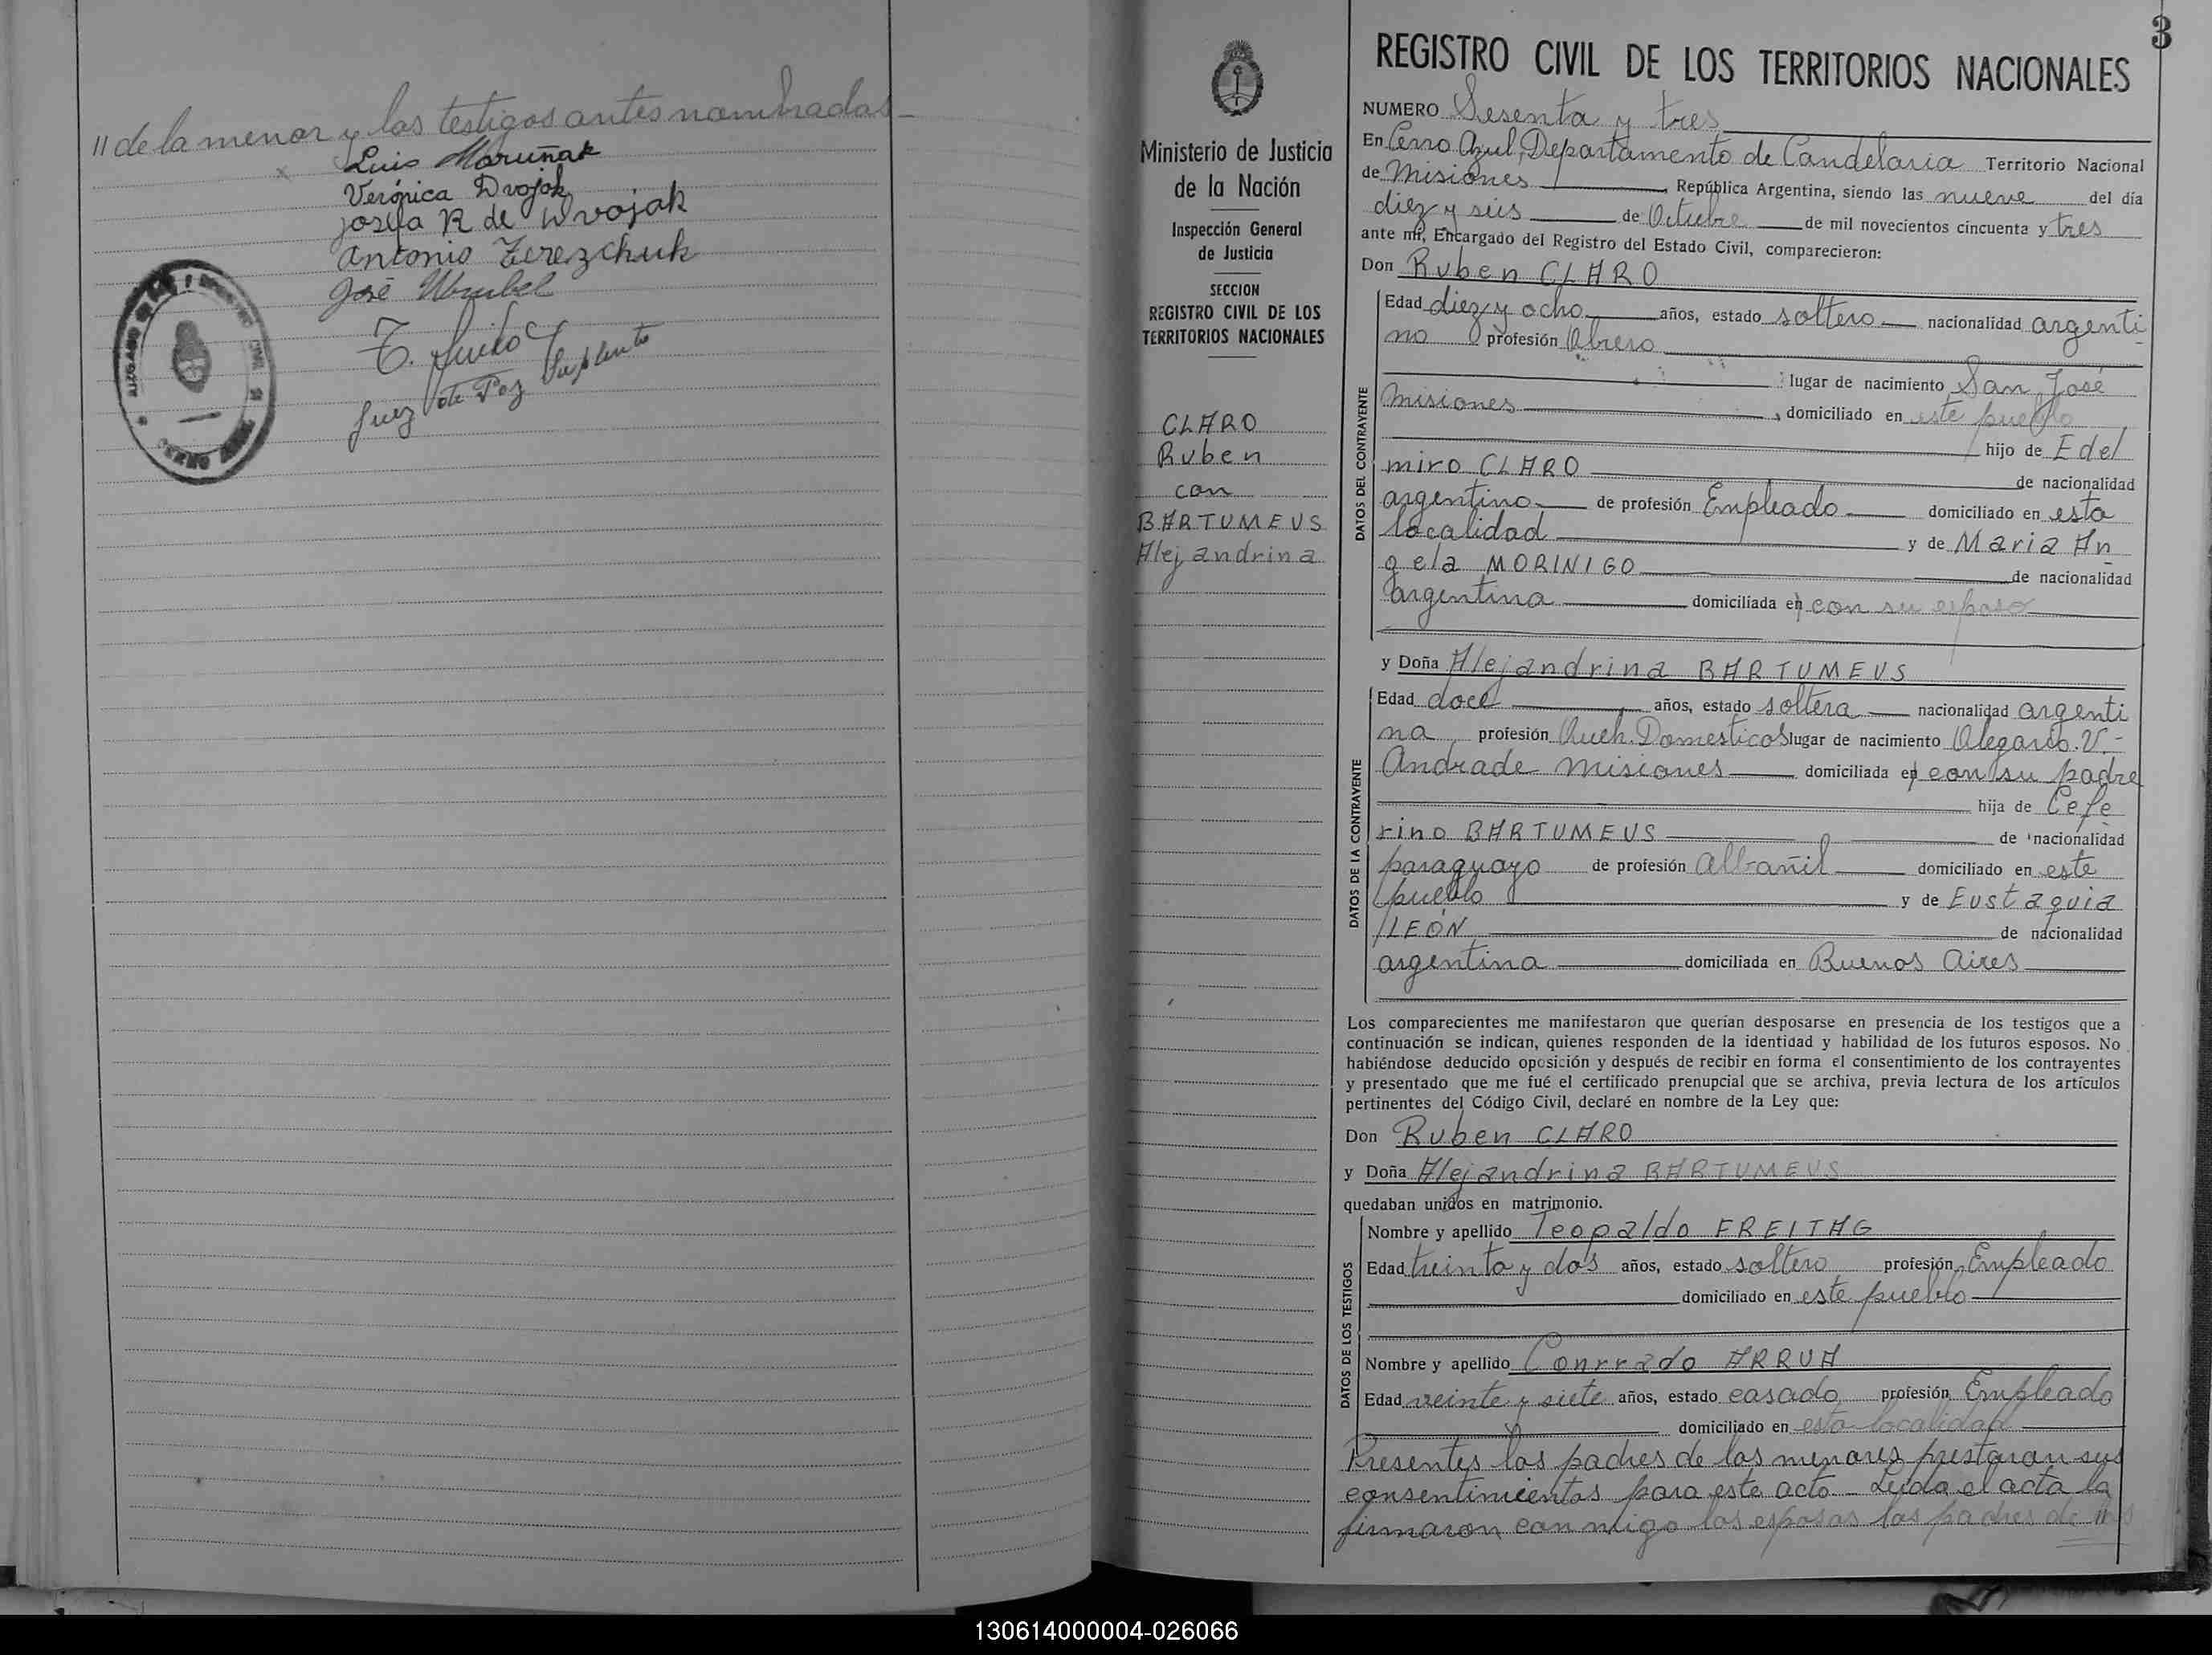 // de la menor y los testigos antes nombrados-
Luis Maruñak
Verónica Dvojak
Josefa R de Dvojak
Antonio Terezchuk
José Wrubel
Juez de Paz Suplente
3
REGISTRO CIVIL DE LOS TERRITORIOS NACIONALES
Ministerio de Justicia
de la Nación
Inspección General
de Justicia
SECCION
REGISTRO CIVIL DE LOS
TERRITORIOS NACIONALES
CLARO
Ruben
con
BARTUMEUS
Alejandrina
NUMERO Sesenta y tres
En Cerro Azul, Departamento de Candelaria Territorio Nacional
de Misiones, República Argentina, siendo las nueve del día
diez y seis de Octubre de mil novecientos cincuenta y tres
ante mí, Encargado del Registro del Estado Civil, comparecieron:
Don Ruben CLARO
DATOS DEL CONTRAYENTE
Edad diez y ocho años, estado soltero nacionalidad argenti
no profesión Obrero
lugar de nacimiento San José
Misiones, domiciliado en este pueblo
hijo de Edel
miro CLARO de nacionalidad
argentino de profesión Empleado domiciliado en esta
localidad y de Maria An
gela MORINIGO de nacionalidad
argentina domiciliada en con su esposo
y Doña Alejandrina BARTUMEUS
DATOS DE LA CONTRAYENTE
Edad doce años, estado soltera nacionalidad argenti
na profesión Queh. Domesticos lugar de nacimiento Olegario. V.-
Andrade Misiones domiciliada en con su padre
hija de Cefe
rino BARTUMEUS de nacionalidad
paraguayo de profesión albañil domiciliado en este
pueblo y de Eustaquia
LEÓN de nacionalidad
argentina domiciliada en Buenos Aires
Los comparecientes me manifestaron que querían desposarse en presencia de los testigos que a
continuación se indican, quienes responden de la identidad y habilidad de los futuros esposos. No
habiéndose deducido oposición y después de recibir en forma el consentimiento de los contrayentes
y presentado que me fué el certificado prenupcial que se archiva, previa lectura de los artículos
pertinentes del Código Civil, declaré en nombre de la Ley que:
Don Ruben CLARO
y Doña Alejandrina BARTUMEUS
quedaban unidos en matrimonio.
DATOS DE LOS TESTIGOS
Nombre y apellido Teopaldo FREITAG
Edad treinta y dos años, estado soltero profesión Empleado
domiciliado en este pueblo
Nombre y apellido Conrrado ARRUA
Edad veinte y siete años, estado casado profesión Empleado
domiciliado en esta localidad
Presentes los padres de los menores prestaron sus
consentimientos para este acto - Leida el acta la
firmaron conmigo los esposos los padres de //
130614000004-026066